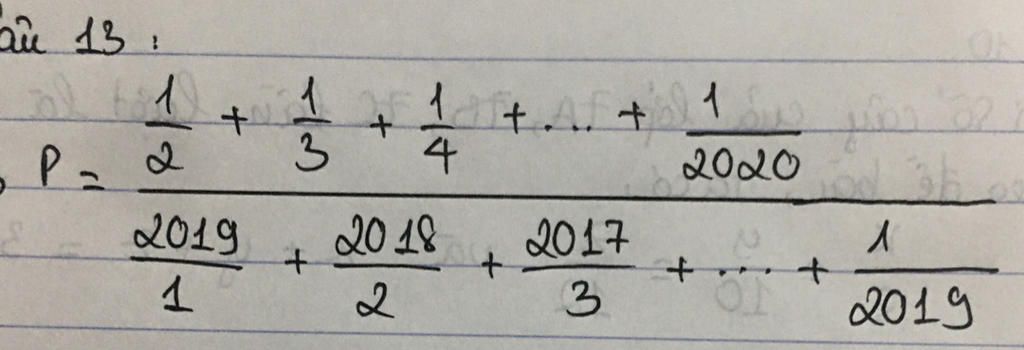 Câu 13:
P = (1/2 + 1/3 + 1/4 + .... + 1/2020) / (2019/1 + 2018/2 + 2017/3 + .... + 1/2019)